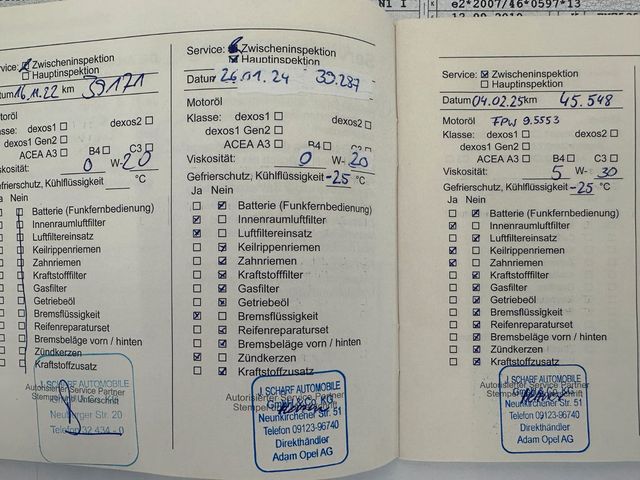 N1 I K e2*2007/46*0597*13
ervice: Zwischeninspektion
Hauptinspektion
tum 16.11.22 km 39171
otoröl
asse: dexos1 dexos2
dexos1 Gen2
ACEA A3 B4 C3
skosität: 0 W-20
efrierschutz, Kühlflüssigkeit °C
Ja Nein
Batterie (Funkfernbedienung)
Innenraumluftfilter
Luftfiltereinsatz
Keilrippenriemen
Zahnriemen
Kraftstofffilter
Gasfilter
Getriebeöl
Bremsflüssigkeit
Reifenreparaturset
Bremsbeläge vorn / hinten
Zündkerzen
Kraftstoffzusatz
J. SCHARF AUTOMOBILE
Autorisierter Service Partner
Neuburger Str. 20
Telefon 32 434 - 0
Service: Zwischeninspektion
Hauptinspektion
Datum 26.11.24 39.287
Motoröl
Klasse: dexos1 dexos2
dexos1 Gen2
ACEA A3 B4
Viskosität: 0 W-20
Gefrierschutz, Kühlflüssigkeit -25 °C
Ja Nein
Batterie (Funkfernbedienung)
Innenraumluftfilter
Luftfiltereinsatz
Keilrippenriemen
Zahnriemen
Kraftstofffilter
Gasfilter
Getriebeöl
Bremsflüssigkeit
Reifenreparaturset
Bremsbeläge vorn / hinten
Zündkerzen
Kraftstoffzusatz
J. SCHARF AUTOMOBILE
Autorisierter Service Partner
GmbH & Co. KG
Neunkirchener Str. 51
Telefon 09123-96740
Direkthändler
Adam Opel AG
Service: Zwischeninspektion
Hauptinspektion
Datum 04.02.25 km 45.548
Motoröl FPW 9.5553
Klasse: dexos1 dexos2
dexos1 Gen2
ACEA A3 B4 C3
Viskosität: 5 W- 30
Gefrierschutz, Kühlflüssigkeit -25 °C
Ja Nein
Batterie (Funkfernbedienung)
Innenraumluftfilter
Luftfiltereinsatz
Keilrippenriemen
Zahnriemen
Kraftstofffilter
Gasfilter
Getriebeöl
Bremsflüssigkeit
Reifenreparaturset
Bremsbeläge vorn / hinten
Zündkerzen
Kraftstoffzusatz
J. SCHARF AUTOMOBILE
Autorisierter Service Partner
GmbH & Co. KG
Neunkirchener Str. 51
Telefon 09123-96740
Direkthändler
Adam Opel AG